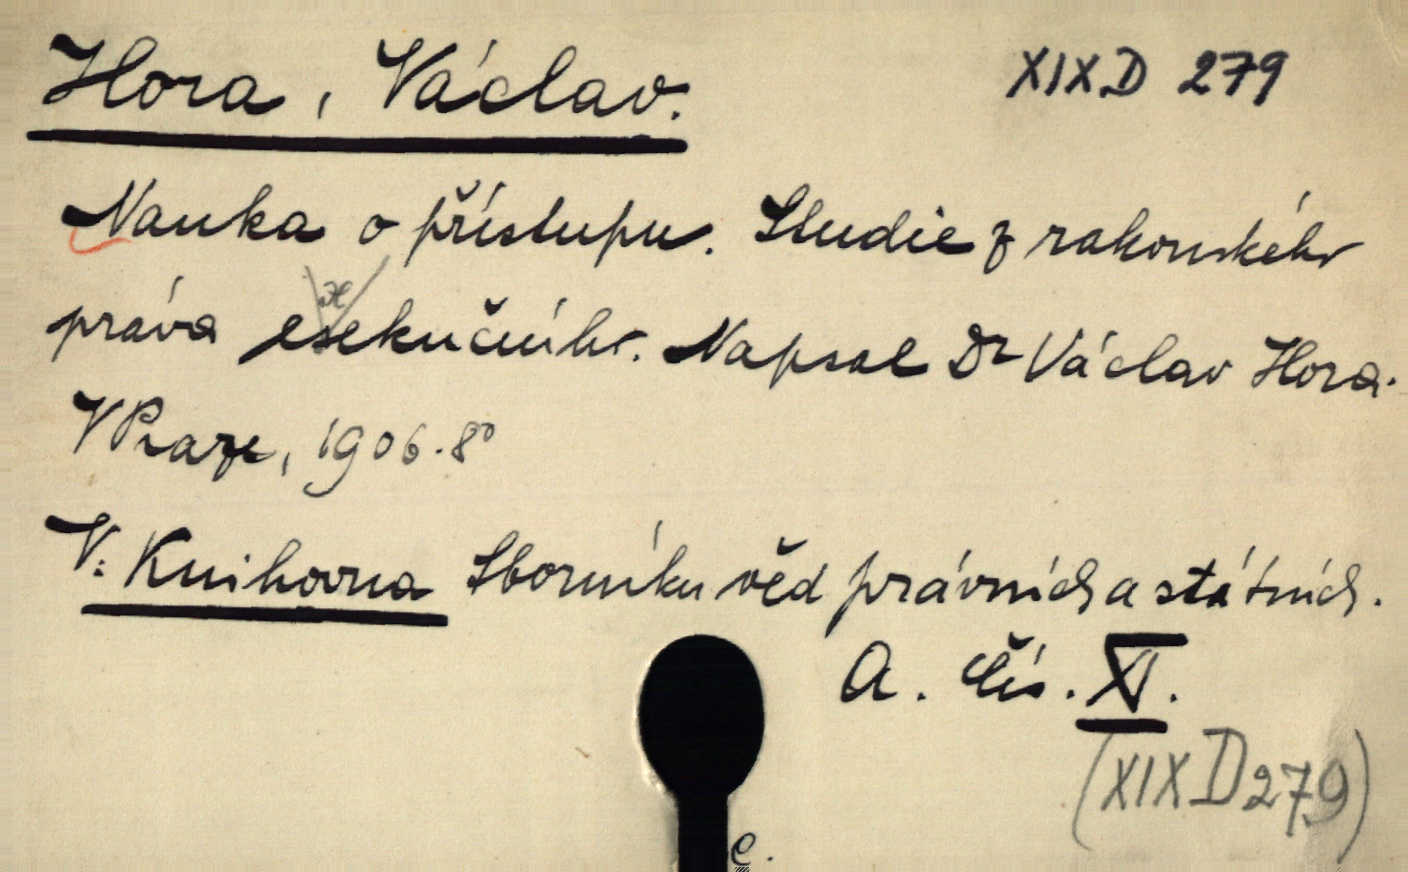 Hora, Václav. XIX.D 279
Nauka o přístupu. Studie z rakouského
práva esekučního. Napsal Dr Václav Hora.
V Praze, 1906. 8°
V: Knihovna Sborníku věd právních a státních.
A. Čís. XV.
(XIX D 279)
e.